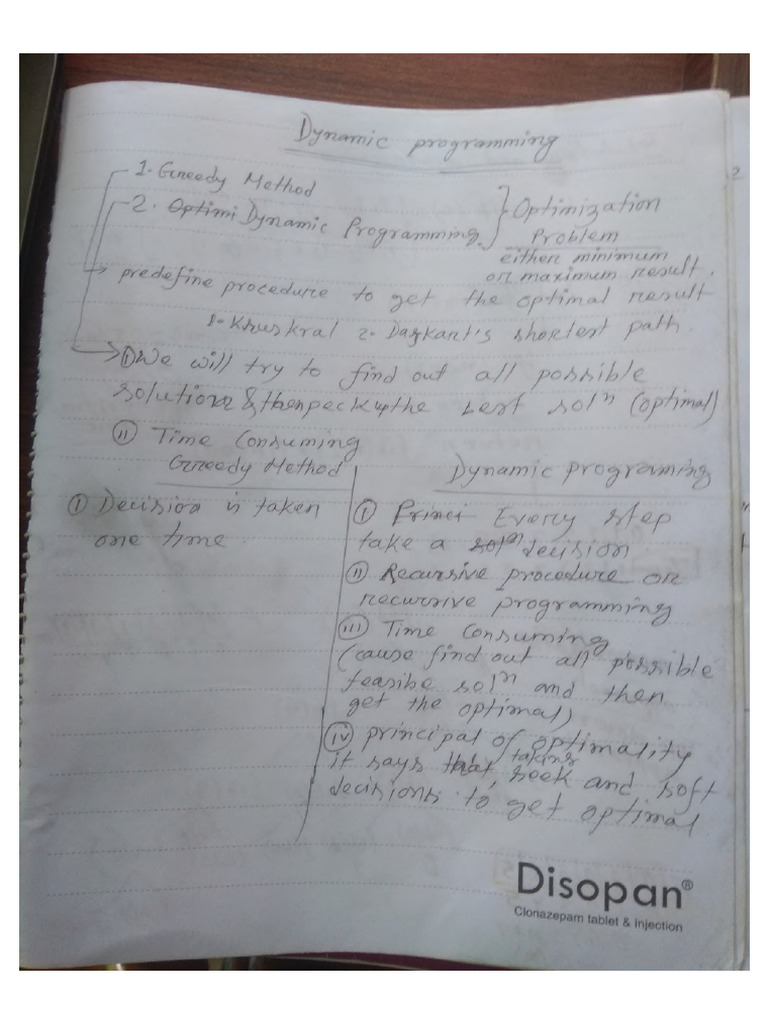 Dynamic programming
1. Greedy Method
2. Optimi Dynamic Programming
} Optimization
Problem
either minimum
or maximum result.
predefine procedure to get the optimal result
1. Khuskral 2. Dajkart's shortest path
① We will try to find out all possible
solution & then peck up the best solⁿ (optimal)
② Time Consuming
Greedy Method
① Decision is taken
one time
Dynamic programing
① Princi Every step
take a solⁿ decision
② Recursive procedure or
recursive programming
③ Time Consuming
(cause find out all possible
feasibe solⁿ and then
get the optimal)
④ principal of optimality
it says that, taking seek and soft
decisions to get optimal
Disopan®
Clonazepam tablet & injection